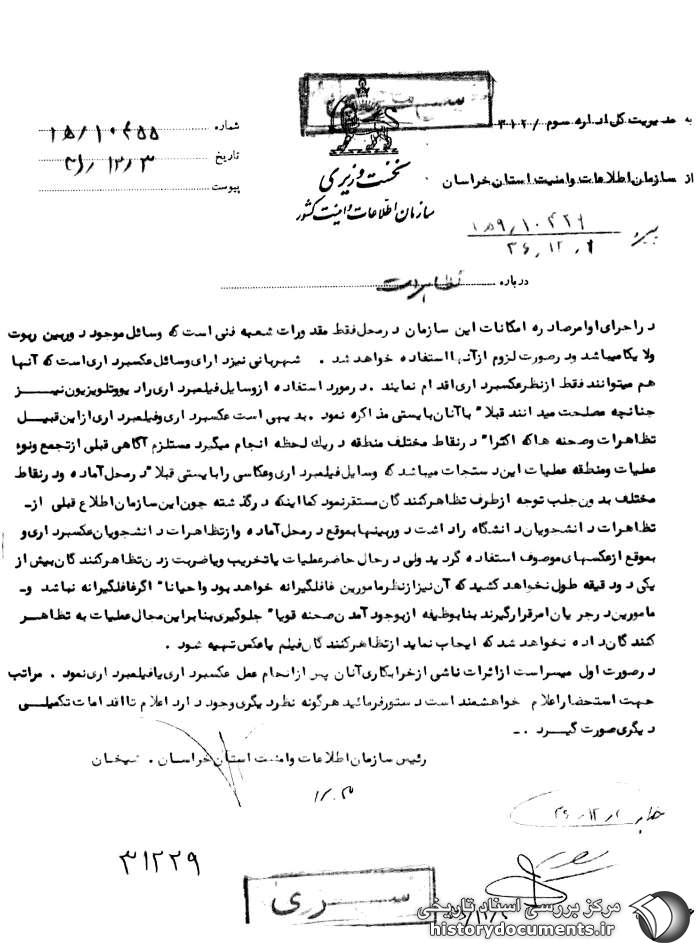 ســـری
به مدیریت کل اداره سوم /۳۱۲
شماره ۱۵/۱۰۴۵۵
تاریخ ۳/۱۲/
پیوست
نخست وزیری
سازمان اطلاعات و امنیت کشور
از سازمان اطلاعات و امنیت استان خراسان
پیرو
درباره تظاهرات
در اجرای اوامر صادره امکانات این سازمان در محل فقط مقدورات شعبه فنی است که وسائل موجود دوربین ربوت
ولایکا میباشد ودر صورت لزوم از آنها استفاده خواهد شد . شهربانی نیز دارای وسائل عکسبرداری است که آنها
هم میتوانند فقط از نظر عکسبرداری اقدام نمایند . در مورد استفاده از وسایل فیلمبرداری رادیو و تلویزیون نیــز
چنانچه مصلحت میدانند قبلا" با آنان بایستی مذاکره نمود . بدیهی است عکسبرداری و فیلمبرداری از این قبیــل
تظاهرات وصحنه ها که اکثرا" در نقاط مختلف منطقه در یك لحظه انجام میگیرد مستلزم آگاهی قبلی از تجمع ونوع
عملیات ومنطقه عملیات این دستجات میباشد که وسایل فیلمبرداری و عکاسی را بایستی قبلا" در محل آماده ودر نقاط
مختلف بدون جلب توجه از طرف تظاهرکنندگان مستقر نمود کما اینکه در گذشته چون این سازمان اطلاع قبلی ازـ
تظاهرات دانشجویان دانشگاه را داشت دوربینها بموقع در محل آماده و از تظاهرات دانشجویان عکسبرداری و
بموقع از عکسهای موصوف استفاده گردید ولی در حال حاضر عملیات یا تخریب ویا ضربت زدن تظاهرکنندگان بیش از
یکی دو دقیقه طول نخواهد کشید که آن نیز از نظر مامورین غافلگیرانه خواهد بود واحیانا" اگر غافلگیرانه نباشد وـ
مامورین در جریان امر قرار گیرند بنا بوظیفه از بوجود آمدن صحنه قویا" جلوگیری بنابراین مجال عملیات به تظاهــر
کنندگان داده نخواهد شد که ایجاب نماید از تظاهرکنندگان فیلم یا عکس تهیه شود .
در صورت اول میسر است از اثرات ناشی از خرابکاری آنان پس از انجام عمل عکسبرداری یا فیلمبرداری نمود . مراتب
جهت استحضار اعلام خواهشمند است دستور فرمائید هرگونه نظر دیگری وجود دارد اعلام تا اقدامات تکمیلــی
دیگری صورت گیــرد . ــ
رئیس سازمان اطلاعات و امنیت استان خراسان . شیخان
۳۱۲۲۹
ســـری
مرکز بررسی اسناد تاریخی
historydocuments.ir